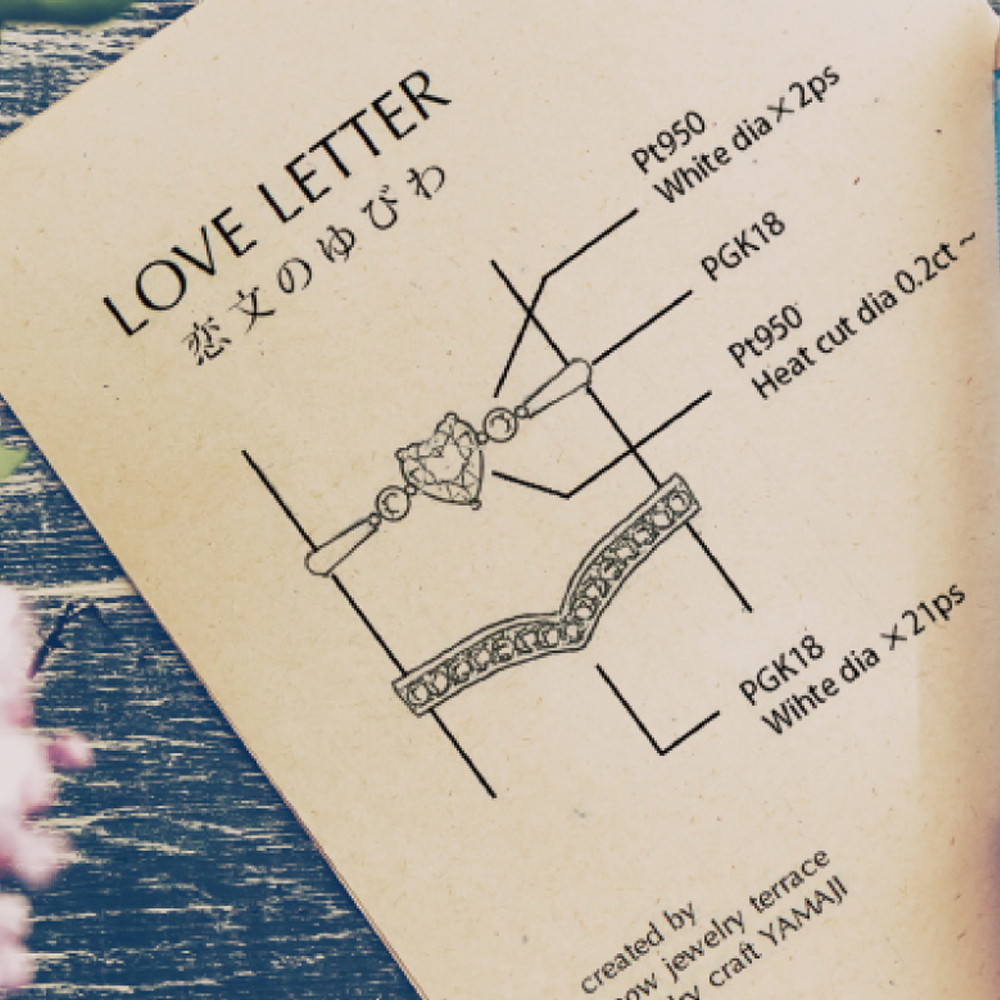 LOVE LETTER
恋文のゆびわ
Pt950
White dia×2ps
PGK18
Pt950
Heat cut dia 0.2ct~
PGK18
Wihte dia ×21ps
created by
jewelry terrace
craft YAMAJI